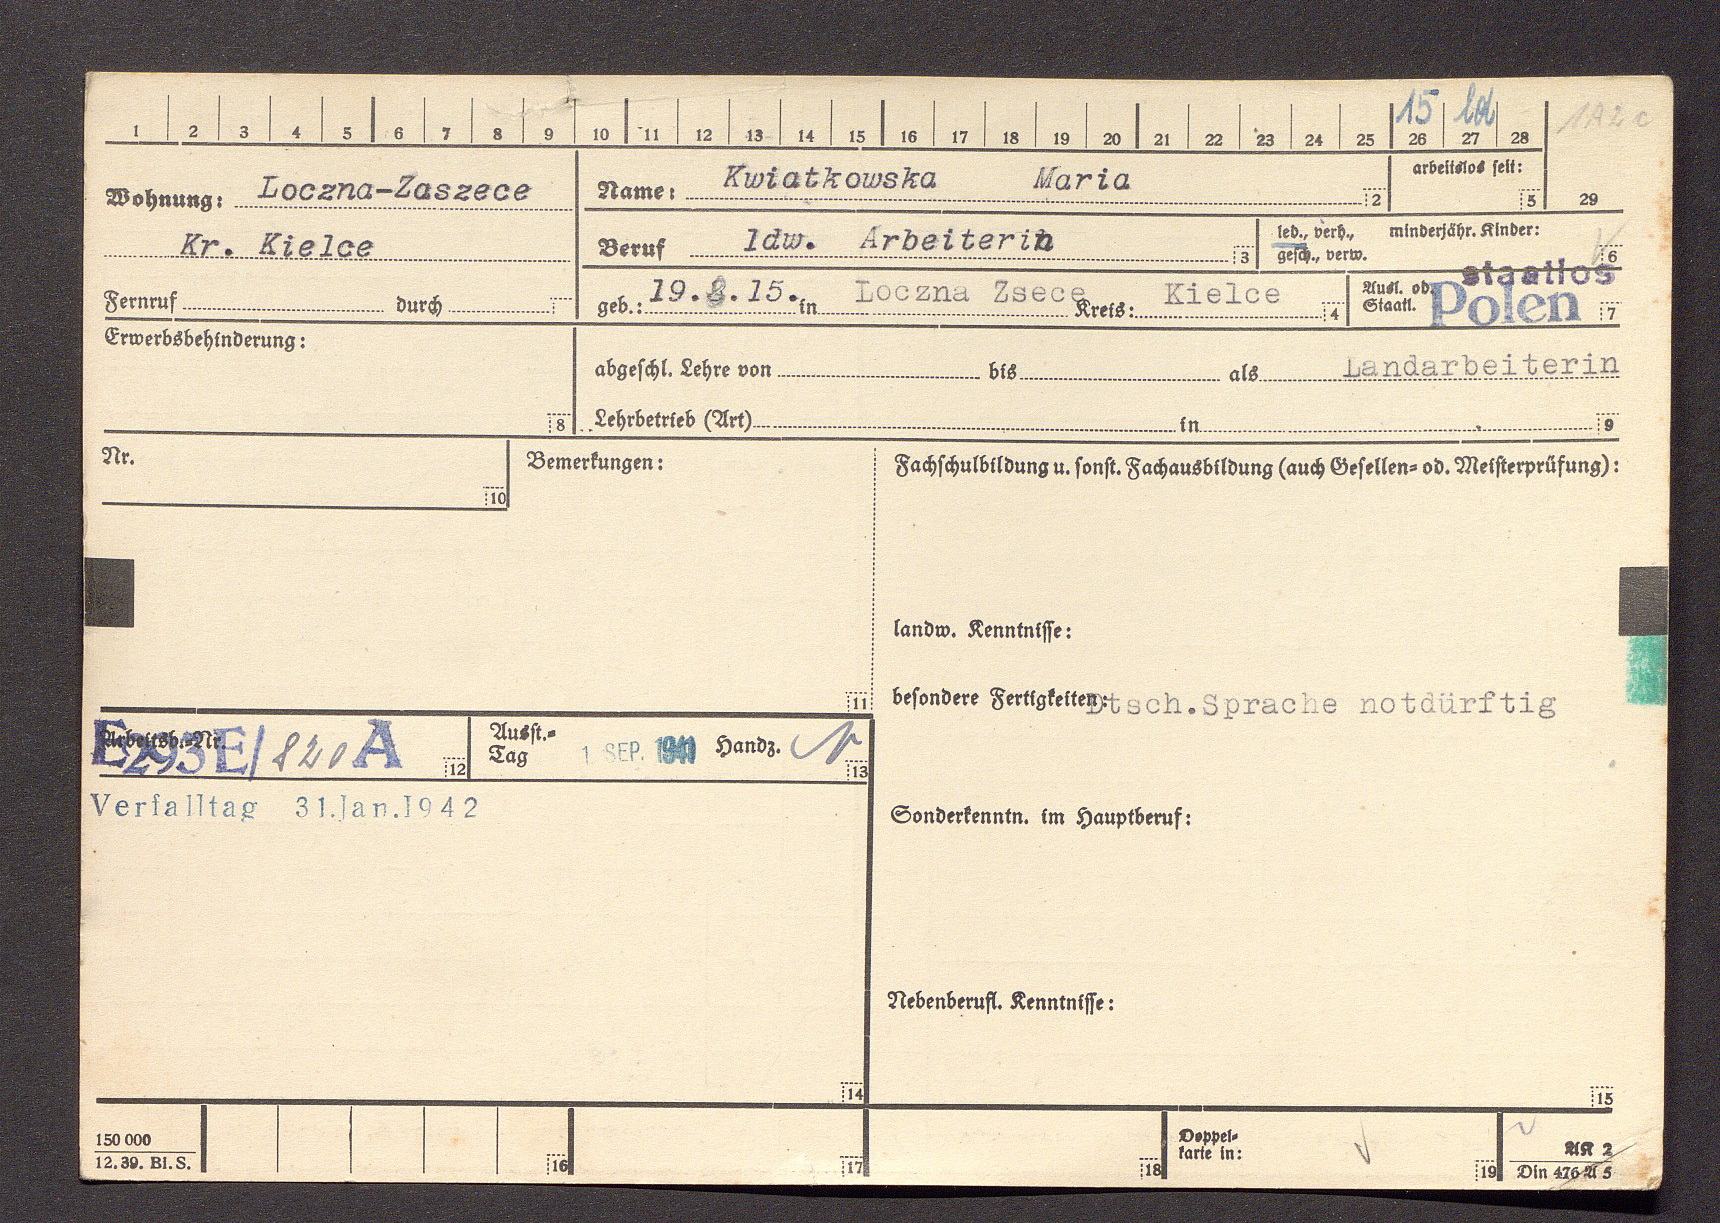 15 ld
1A2c
1 2 3 4 5 6 7 8 9 10 11 12 13 14 15 16 17 18 19 20 21 22 23 24 25 26 27 28
29
Wohnung: Loczna-Zaszece
Kr. Kielce
Fernruf durch
Name: Kwiatkowska Maria 2
arbeitslos seit: 5
Beruf ldw. Arbeiterin 3
led., verh., minderjähr. Kinder:
gesch., verw. 6
geb.: 19.8.15. in Loczna Zsece Kreis: Kielce 4
Ausl. od. staatlos
Staatl. Polen 7
Erwerbsbehinderung:
8
abgeschl. Lehre von bis als Landarbeiterin
Lehrbetrieb (Art) in 9
Nr.
10
Bemerkungen:
11
Fachschulbildung u. sonst. Fachausbildung (auch Gesellen- od. Meisterprüfung):
landw. Kenntnisse:
besondere Fertigkeiten: Dtsch.Sprache notdürftig
Sonderkenntn. im Hauptberuf:
Nebenberufl. Kenntnisse:
15
Arbeitsb.-Nr. E293E/820A 12
Ausst.-
Tag 1 SEP. 1941 Handz. 13
Verfalltag 31.Jan.1942
14
150 000
12. 39. Bl. S.
16
17
18
Doppel-
karte in: 19
AK 2
Din 476 A 5